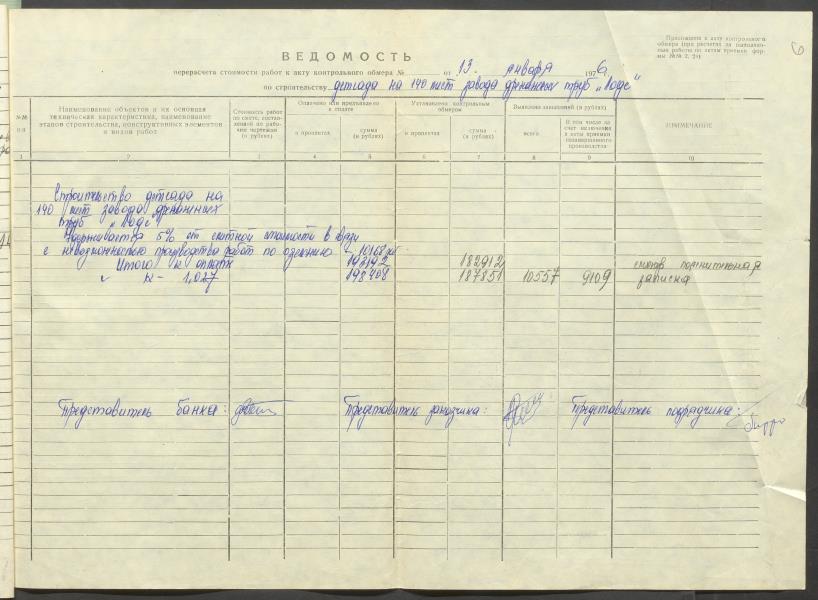 6
Приложение к акту контрольного
обмера (при расчетах за выполнен-
ные работы по актам приемки фор-
мы №№ 2, 2а)
ВЕДОМОСТЬ
перерасчета стоимости работ к акту контрольного обмера № от 13. января 1976
по строительству детсада на 140 мест завода дренажных труб „Лоде"
№№ п/п
Наименование объектов и их основная техническая характеристика, наименование этапов строительства, конструктивных элементов и видов работ
Стоимость работ по смете, составленной по рабочим чертежам (в рублях)
Оплачено или предъявлено к оплате
в процентах
сумма (в рублях)
Установлено контрольным обмером
в процентах
сумма (в рублях)
Выявлено завышений (в рублях)
всего
В том числе за счет включения в акты приемки незавершенного производства
ПРИМЕЧАНИЕ
1 2 3 4 5 6 7 8 9 10
Строительство детсада на
140 мест завода дренажных
труб „Лоде"
Удерживается 5% от сметной стоимости в связи
с невозможностью производства работ по озеленению - 10168
Итого к оплате 192192 182912
К - 1,027 198408 187851 10557 9109 записка
Представитель банка: Представитель заказчика: Представитель подрядчика: